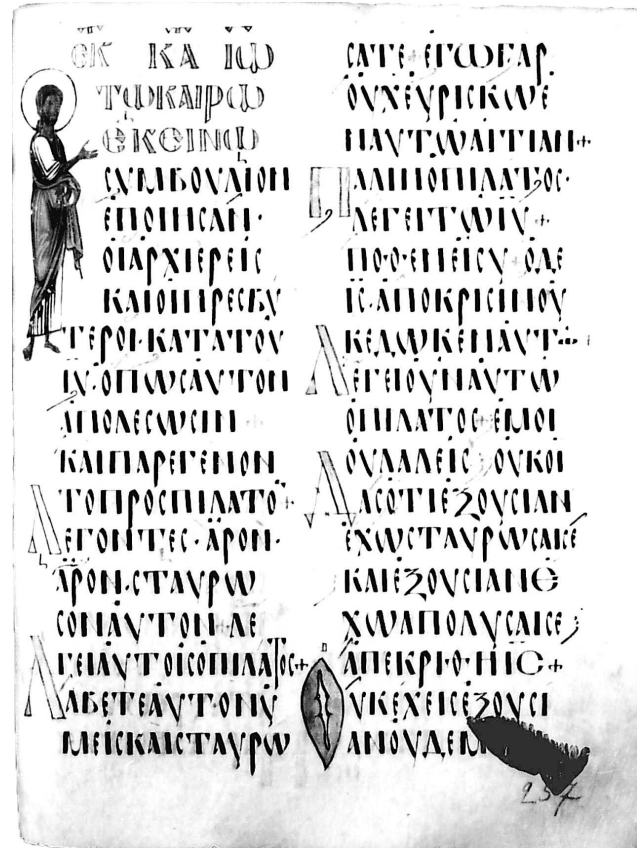 ἘΚ ΚΑ ΙΩ
ΤΩΚΑΙΡΩ
ΕΚΕΙΝΩ
ΣΥΜΒΟΥΛΙΟΝ
ΕΠΟΙΗΣΑΝ·
ΟΙΑΡΧΙΕΡΕΙΣ
ΚΑΙΟΙΠΡΕΣΒΥ
ΤΕΡΟΙ·ΚΑΤΑΤΟΥ
ΙΥ·ΟΠΩΣΑΥΤΟΝ
ΑΠΟΛΕΣΩΣΙΝ
ΚΑΙΠΑΡΕΓΕΝΟΝ
ΤΟΠΡΟΣΠΙΛΑΤΟ+
ΛΕΓΟΝΤΕΣ·ΑΡΟΝ·
ΑΡΟΝ·ΣΤΑΥΡΩ
ΣΟΝΑΥΤΟΝ·ΛΕ
ΓΕΙΑΥΤΟΙΣΟΠΙΛΑΤΟΣ+
ΛΑΒΕΤΕΑΥΤΟΝΥ
ΜΕΙΣΚΑΙΣΤΑΥΡΩ
ΣΑΤΕ+ΕΓΩΓΑΡ
ΟΥΧΕΥΡΙΣΚΩΕ
ΝΑΥΤΩΑΙΤΙΑΝ+
ΠΑΛΙΝΟΠΙΛΑΤΟΣ·
ΛΕΓΕΙΤΩΙΥ+
ΠΟΘΕΝΕΙΣΥ·ΟΔΕ
ΙΣ·ΑΠΟΚΡΙΣΙΝΟΥ
ΚΕΔΩΚΕΝΑΥΤΩ+
ΛΕΓΕΙΟΥΝΑΥΤΩ
ΟΠΙΛΑΤΟΣ+ΕΜΟΙ
ΟΥΛΑΛΕΙΣ·ΟΥΚΟΙ
ΔΑΣΟΤΙΕΞΟΥΣΙΑΝ
ΕΧΩΣΤΑΥΡΩΣΑΙΣΕ
ΚΑΙΕΞΟΥΣΙΑΝΕ
ΧΩΑΠΟΛΥΣΑΙΣΕ;
ΑΠΕΚΡΙΘΗΙΣ+
ΟΥΚΕΧΕΙΣΕΞΟΥΣΙ
ΑΝΟΥΔΕΜ
257